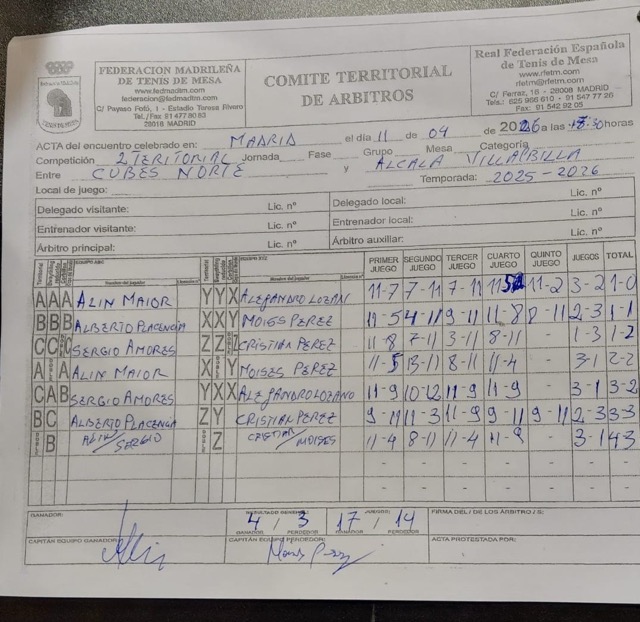 FEDERACION MADRILEÑA
DE TENIS DE MESA
www.fedmadtm.com
federacion@fedmadtm.com
C/ Payaso Fofó, 1 - Estadio Teresa Rivero
Tel./Fax 91 477 80 83
28018 MADRID
COMITE TERRITORIAL
DE ARBITROS
Real Federación Española
de Tenis de Mesa
www.rfetm.com
rfetm@rfetm.com
C/ Ferraz, 16 - 28008 MADRID
Tels.: 625 966 610 - 91 547 77 26
Fax: 91 542 92 05
ACTA del encuentro celebrado en MADRID el día 11 de 04 de 2026 a las 18:30 horas
Competición 2 TERITORIAL Jornada Fase Grupo Mesa Categoría
Entre CUBES NORTE y ALCALA VILLALBILLA
Temporada: 2025-2026
Local de juego:
Delegado visitante: Lic. nº Delegado local: Lic. nº
Entrenador visitante: Lic. nº Entrenador local: Lic. nº
Árbitro principal: Lic. nº Árbitro auxiliar: Lic. nº
EQUIPO ABC Nombre del jugador EQUIPO XYZ Nombre del jugador PRIMER JUEGO SEGUNDO JUEGO TERCER JUEGO CUARTO JUEGO QUINTO JUEGO JUEGOS TOTAL
A A A ALIN MAIOR Y Y X ALEJANDRO LOZAN 11-7 7-11 7-11 11-2 3-2 1-0
B B B ALBERTO PLACENCIA X X Y MOISS PEREZ 11-5 4-11 9-11 11-8 8-11 2-3 1-1
C C C SERGIO AMORES Z Z CRISTIAN PEREZ 11-8 7-11 3-11 8-11 - 1-3 1-2
A A ALIN MAIOR X Y MOISES PEREZ 11-5 13-11 8-11 11-4 - 3-1 2-2
C A B SERGIO AMORES Y X X ALEJANDRO LOZANO 11-9 10-12 11-9 11-9 - 3-1 3-2
B C ALBERTO PLACENCIA Z Y CRISTIAN PEREZ 9-11 11-3 11-9 9-11 9-11 2-3 3-3
B ALIN/SERGIO Z CRISTIAN/MOISES 11-4 8-11 11-4 11-9 - 3-1 4-3
- - - - - - -
- - - - - - -
GANADOR: RESULTADO GENERAL: 4 / 3 JUEGOS: 17 / 14 FIRMA DEL / DE LOS ARBITRO / S:
GANADOR PERDEDOR GANADOR PERDEDOR
CAPITÁN EQUIPO GANADOR: CAPITÁN EQUIPO PERDEDOR: ACTA PROTESTADA POR: